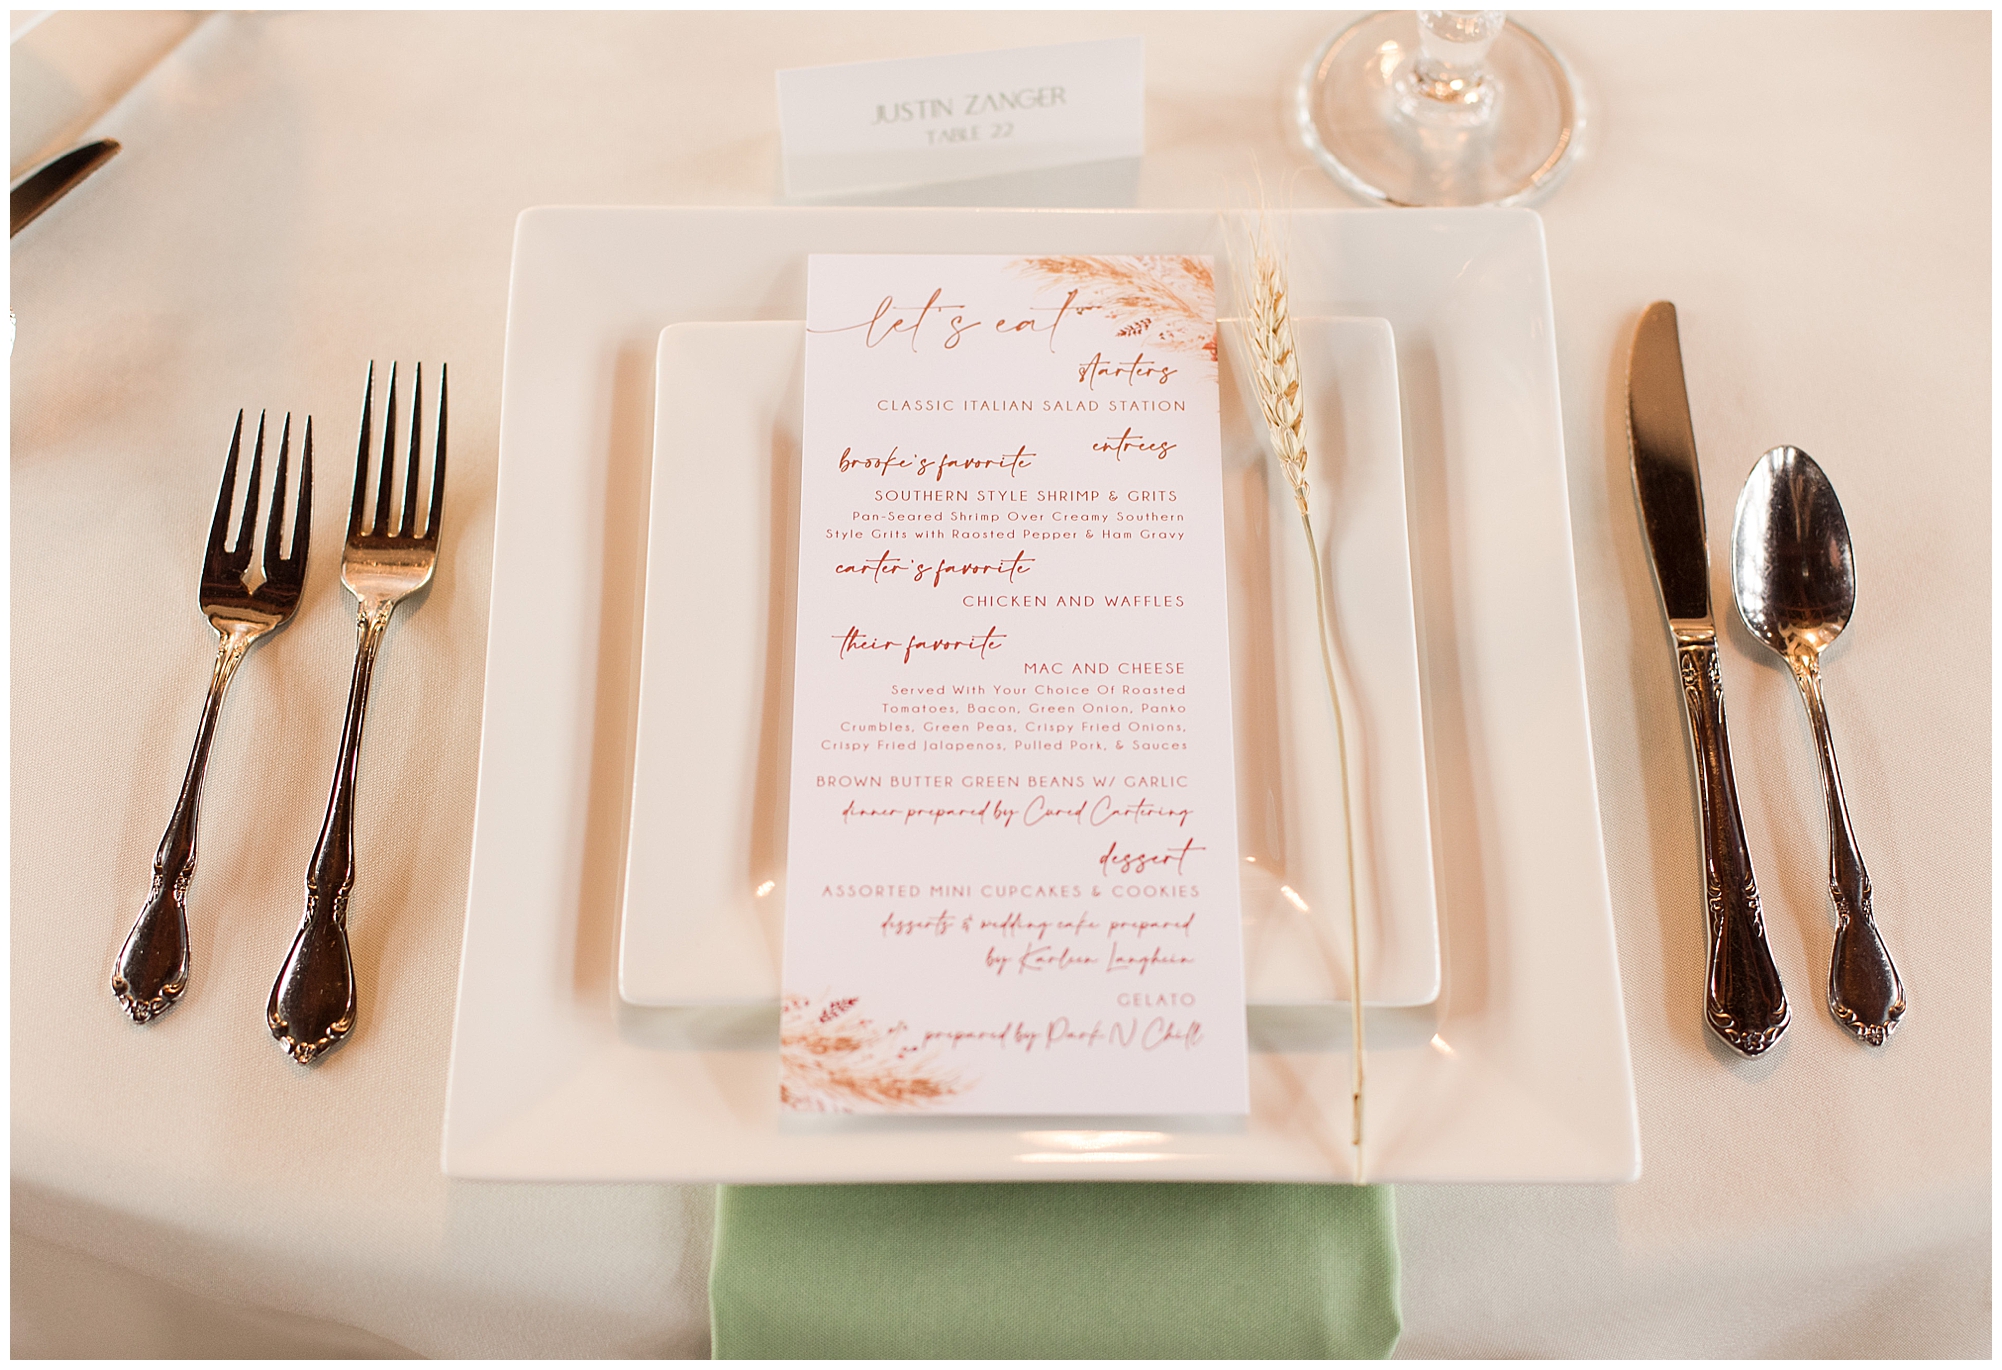 JUSTIN ZANGER
TABLE 22
let's eat
starters
CLASSIC ITALIAN SALAD STATION
entrees
brooke's favorite
SOUTHERN STYLE SHRIMP & GRITS
Pan-Seared Shrimp Over Creamy Southern
Style Grits with Raosted Pepper & Ham Gravy
carter's favorite
CHICKEN AND WAFFLES
their favorite
MAC AND CHEESE
Served With Your Choice Of Roasted
Tomatoes, Bacon, Green Onion, Panko
Crumbles, Green Peas, Crispy Fried Onions,
Crispy Fried Jalapenos, Pulled Pork, & Sauces
BROWN BUTTER GREEN BEANS W/ GARLIC
dinner prepared by Cured Cartering
dessert
ASSORTED MINI CUPCAKES & COOKIES
desserts & wedding cake prepared
by Karleen Langhein
GELATO
prepared by Park N Chill